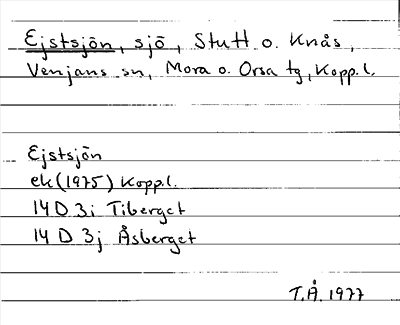 Ejstsjön, sjö, Stutt o. Knås,
Venjans sn, Mora o. Orsa tg, Kopp.l.
Ejstsjön
ek (1975) Kopp.l.
14 D 3i Tiberget
14 D 3j Åsberget
T.Å. 1977